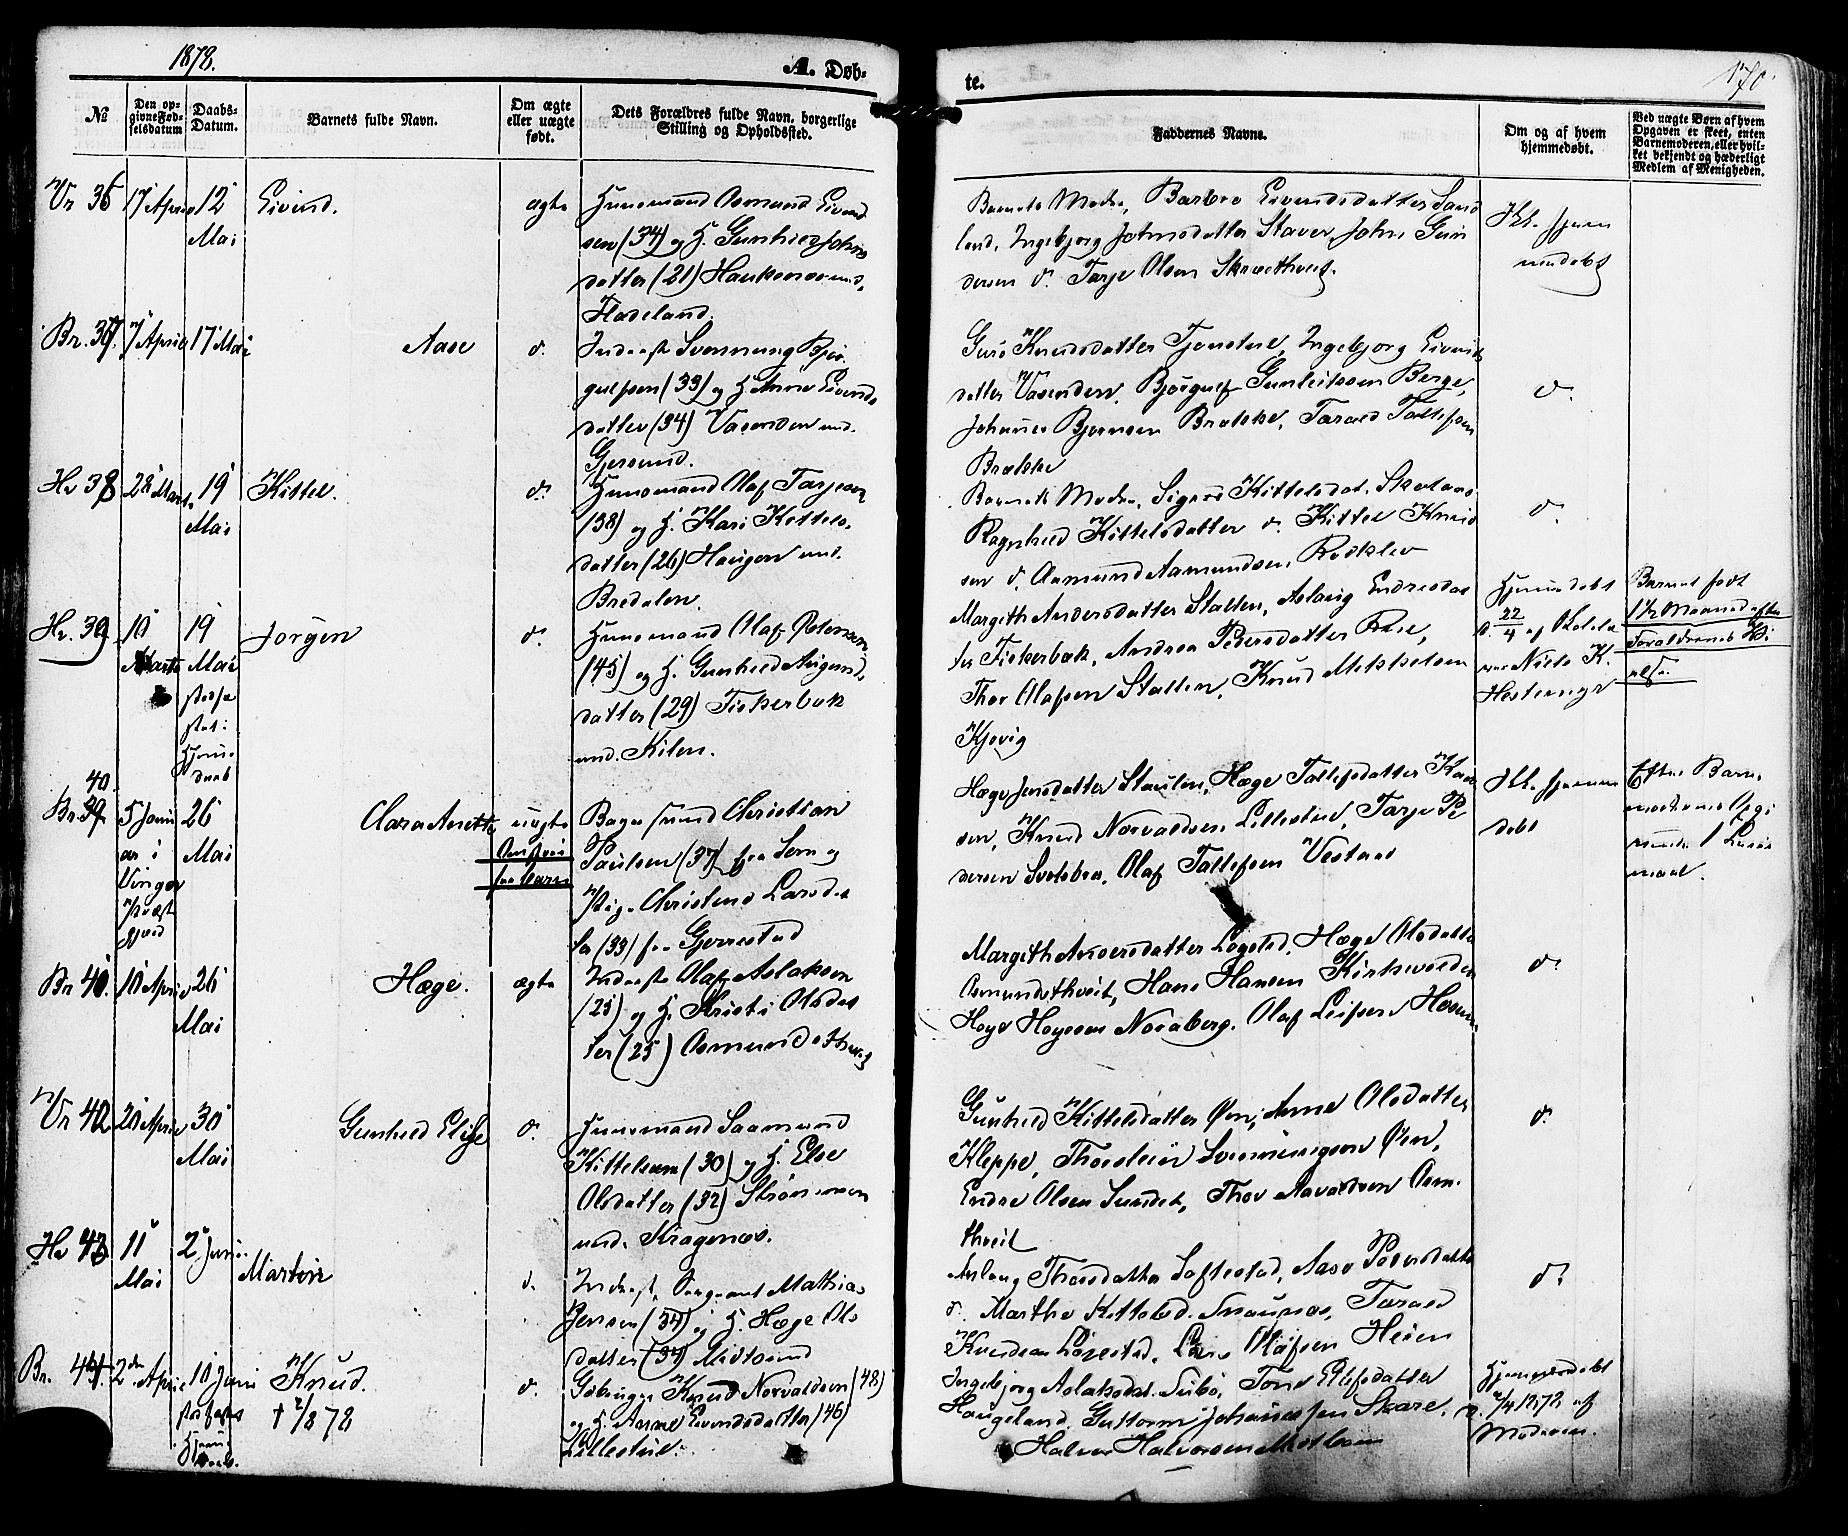 1872.
A. Døb-
te.
170
№
Den op-
givne Fød-
selsdatum
Daabs-
Datum.
Barnets fulde Navn.
Om ægte
eller uægte
født.
Dets Forældres fulde Navn, borgerlige
Stilling og Opholdssted.
Faddernes Navne.
Om og af hvem
hjemmedøbt.
Ved uægte Børn af hvem
Opgaven er skeet, enten
Barnemoderen, eller hvil-
ket bekjendt og hæderligt
Medlem af Menigheden.
Vr 36
17 April
12
Mai
Eivind.
ægte
Huusmand Asmund Eivind
sen (34) og H. Gunhild Johns
datter (21) Haukenæs und.
Barnets Moder, Barbro Eivindsdatter Sand
land, Ingebjorg Johnsdatter Staver, John Gun
dersen d. Tarje Olsen Skrætthveit.
Ikke hjem
medøbt
Br. 37.
7 April
17 Mai
Aase
d.
Inderst Svennung Bjør
gulfsen (33) og H. Anne Eivinds
datter (34) Vasenden und.
Guro Knudsdatter Tjenstud, Ingebjorg Eivinds
datter Vasenden, Bjørgulf Gunleiksen Berge,
Johannes Bjørnsen Brekke, Tarald Tallefsen
Brekke
d.
Hv 38
28 Marts
19
Mai
Kittel.
d.
Huusmand Olaf Tarjesen
(38) og H. Kari Kittels-
datter (26) Haugen und.
Bredalen.
Barnets Moder, Sigrid Kittelsdat.
Ragnhild Kittelsdatter d. Kittel Knud
sen d. Aamund Aamundsen,
d.
Hv. 39
10
Marts
19
Mai
stadfæ
stet:
Hjem-
daab
Jorgen
d.
Huusmand Olaf Petersen
(45) og H. Gunhild Aagund.
datter (29) Fiskerbæk
und. Kilen.
Margith Andersdatter Stallen, Aslaug Endresdat
ter Fiskerbæk, Andrea Pedersdatter
Thor Olafsen Stallen, Knud Mikkelsen
Kjøvig
Hjemmedøbt
d. 22/4 af Skolelæ
rer Niels K.
Hestemyr
Barnet født
Forældrenes Vi
else.
40.
Br. 39
5 Janu
ar i
Vinger
Præst
gjeld
26
Mai
Clara Anette
uægte
Bager Svend Christian
Paulsen (37) fra
Pige Christine Larsdat
ter (33) fra Gjerrestad
Hæge Jensdatter Staulen, Hæge Tallefsdatter
sen, Knud Norvaldsen Lillestud, Tarje Pe
dersen, Olaf Tallefsen Vestad
Ikke hjemme
døbt
Efter Barne
moderens Opgi
vende
Br 40.
10 April
26
Mai
Hæge.
ægte
Inderst Olaf Aslaksen
(25) og H. Kristi Olsdat
ter (25) Asmundsthveit
Margith Andersdatter Lognstad, Hæge Olsdatter
Asmundsthveit, Hans Hansen Kirkevolden
Hoye Hoyesen Noraberg, Olaf Leifsen
d.
Vr 42
20 April
30
Mai
Gunhild Elise
d.
Huusmand Saamund
Kittelsen (30) og H. Else
Olsdatter (32) Strømmen
und. Kragenæs.
Gunhild Kittelsdatter Øen, Anne Olsdatter
Kleppe, Thorsteir Svenningsen Øen,
Endre Olsen Sundet, Thor Aavaldsen Asm-
thveit
d.
Hv 43
11
Mai
2 Juni
Martin
d.
Inderst Sergeant Mathias
Jensen (34) og H. Hæge Ols
datter (34) Midtsund
Aslaug Thorsdatter Loftestad, Aase Pedersdatter
d. Marthe Kittelsd. Snaunæs, Tarald
Knudsen, Lars Olafsen Heien
d.
Br. 44
2den April
10 Juni
stadfæstet
Hjem-
daab.
Knud.
† 2/8 72
d.
Gbruger Knud Norvaldsen (48)
og H. Anne Eivindsdatter (46)
Lillestud.
Ingebjorg Aslaksdat. Lübø, Tone Ellefsdatter
Haugeland, Guttorm Johannessen Skare,
Halvor Halvorsen Midtbøen
Hjemmedøbt
d. 2/4 1872 af
Moderen.